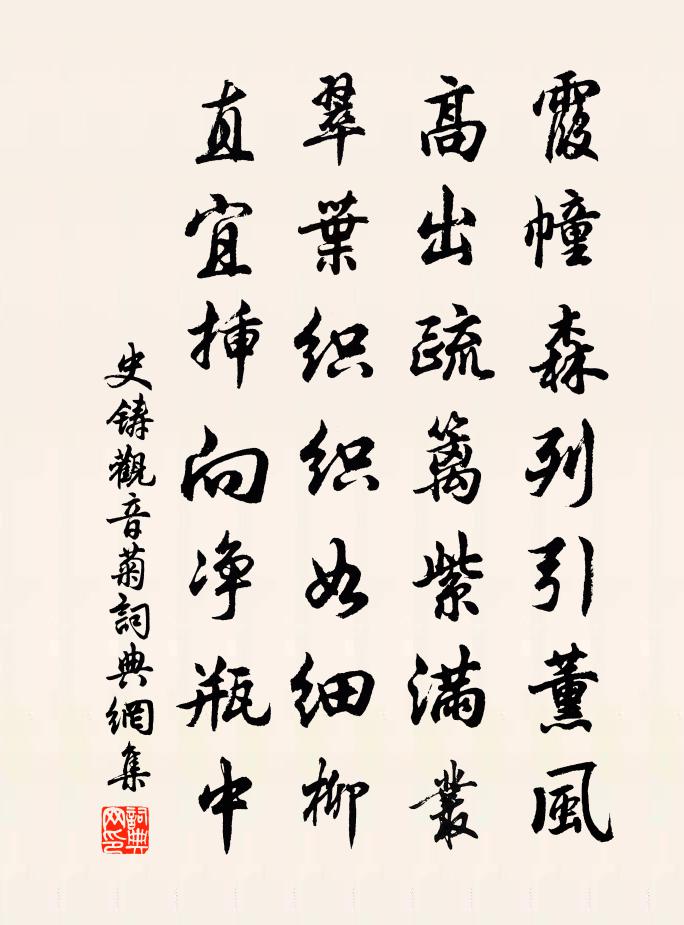 霞幢森列引薰風
高出疏籬紫滿叢
翠葉织织如细柳
直宜挿向净瓶中
史铸觀音菊詞典網集
詞典网印